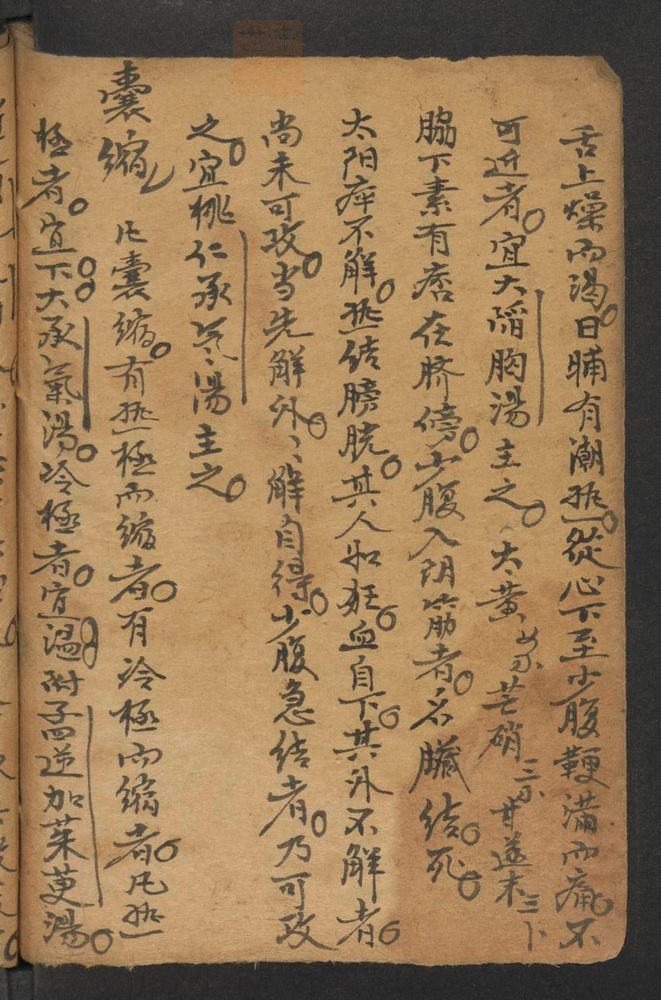 舌上燥而渴。日晡有潮热。從心下至小腹鞕滿而痛。不
可近者。宜大陷胸湯主之。大黄 芒硝 甘遂末
脇下素有痞在脐傍。少腹入阴筋者。名臟结。死。
太阳病不解。热结膀胱。其人如狂。血自下。其外不解者。
尚未可攻。当先解外。〻解自得。少腹急结者。乃可攻
之。宜桃仁承气湯主之。
囊縮 凡囊縮。有热極而縮者。有冷極而縮者。凡热
極者。宜下。大承氣湯。冷極者。宜温。附子四逆加茱萸湯。